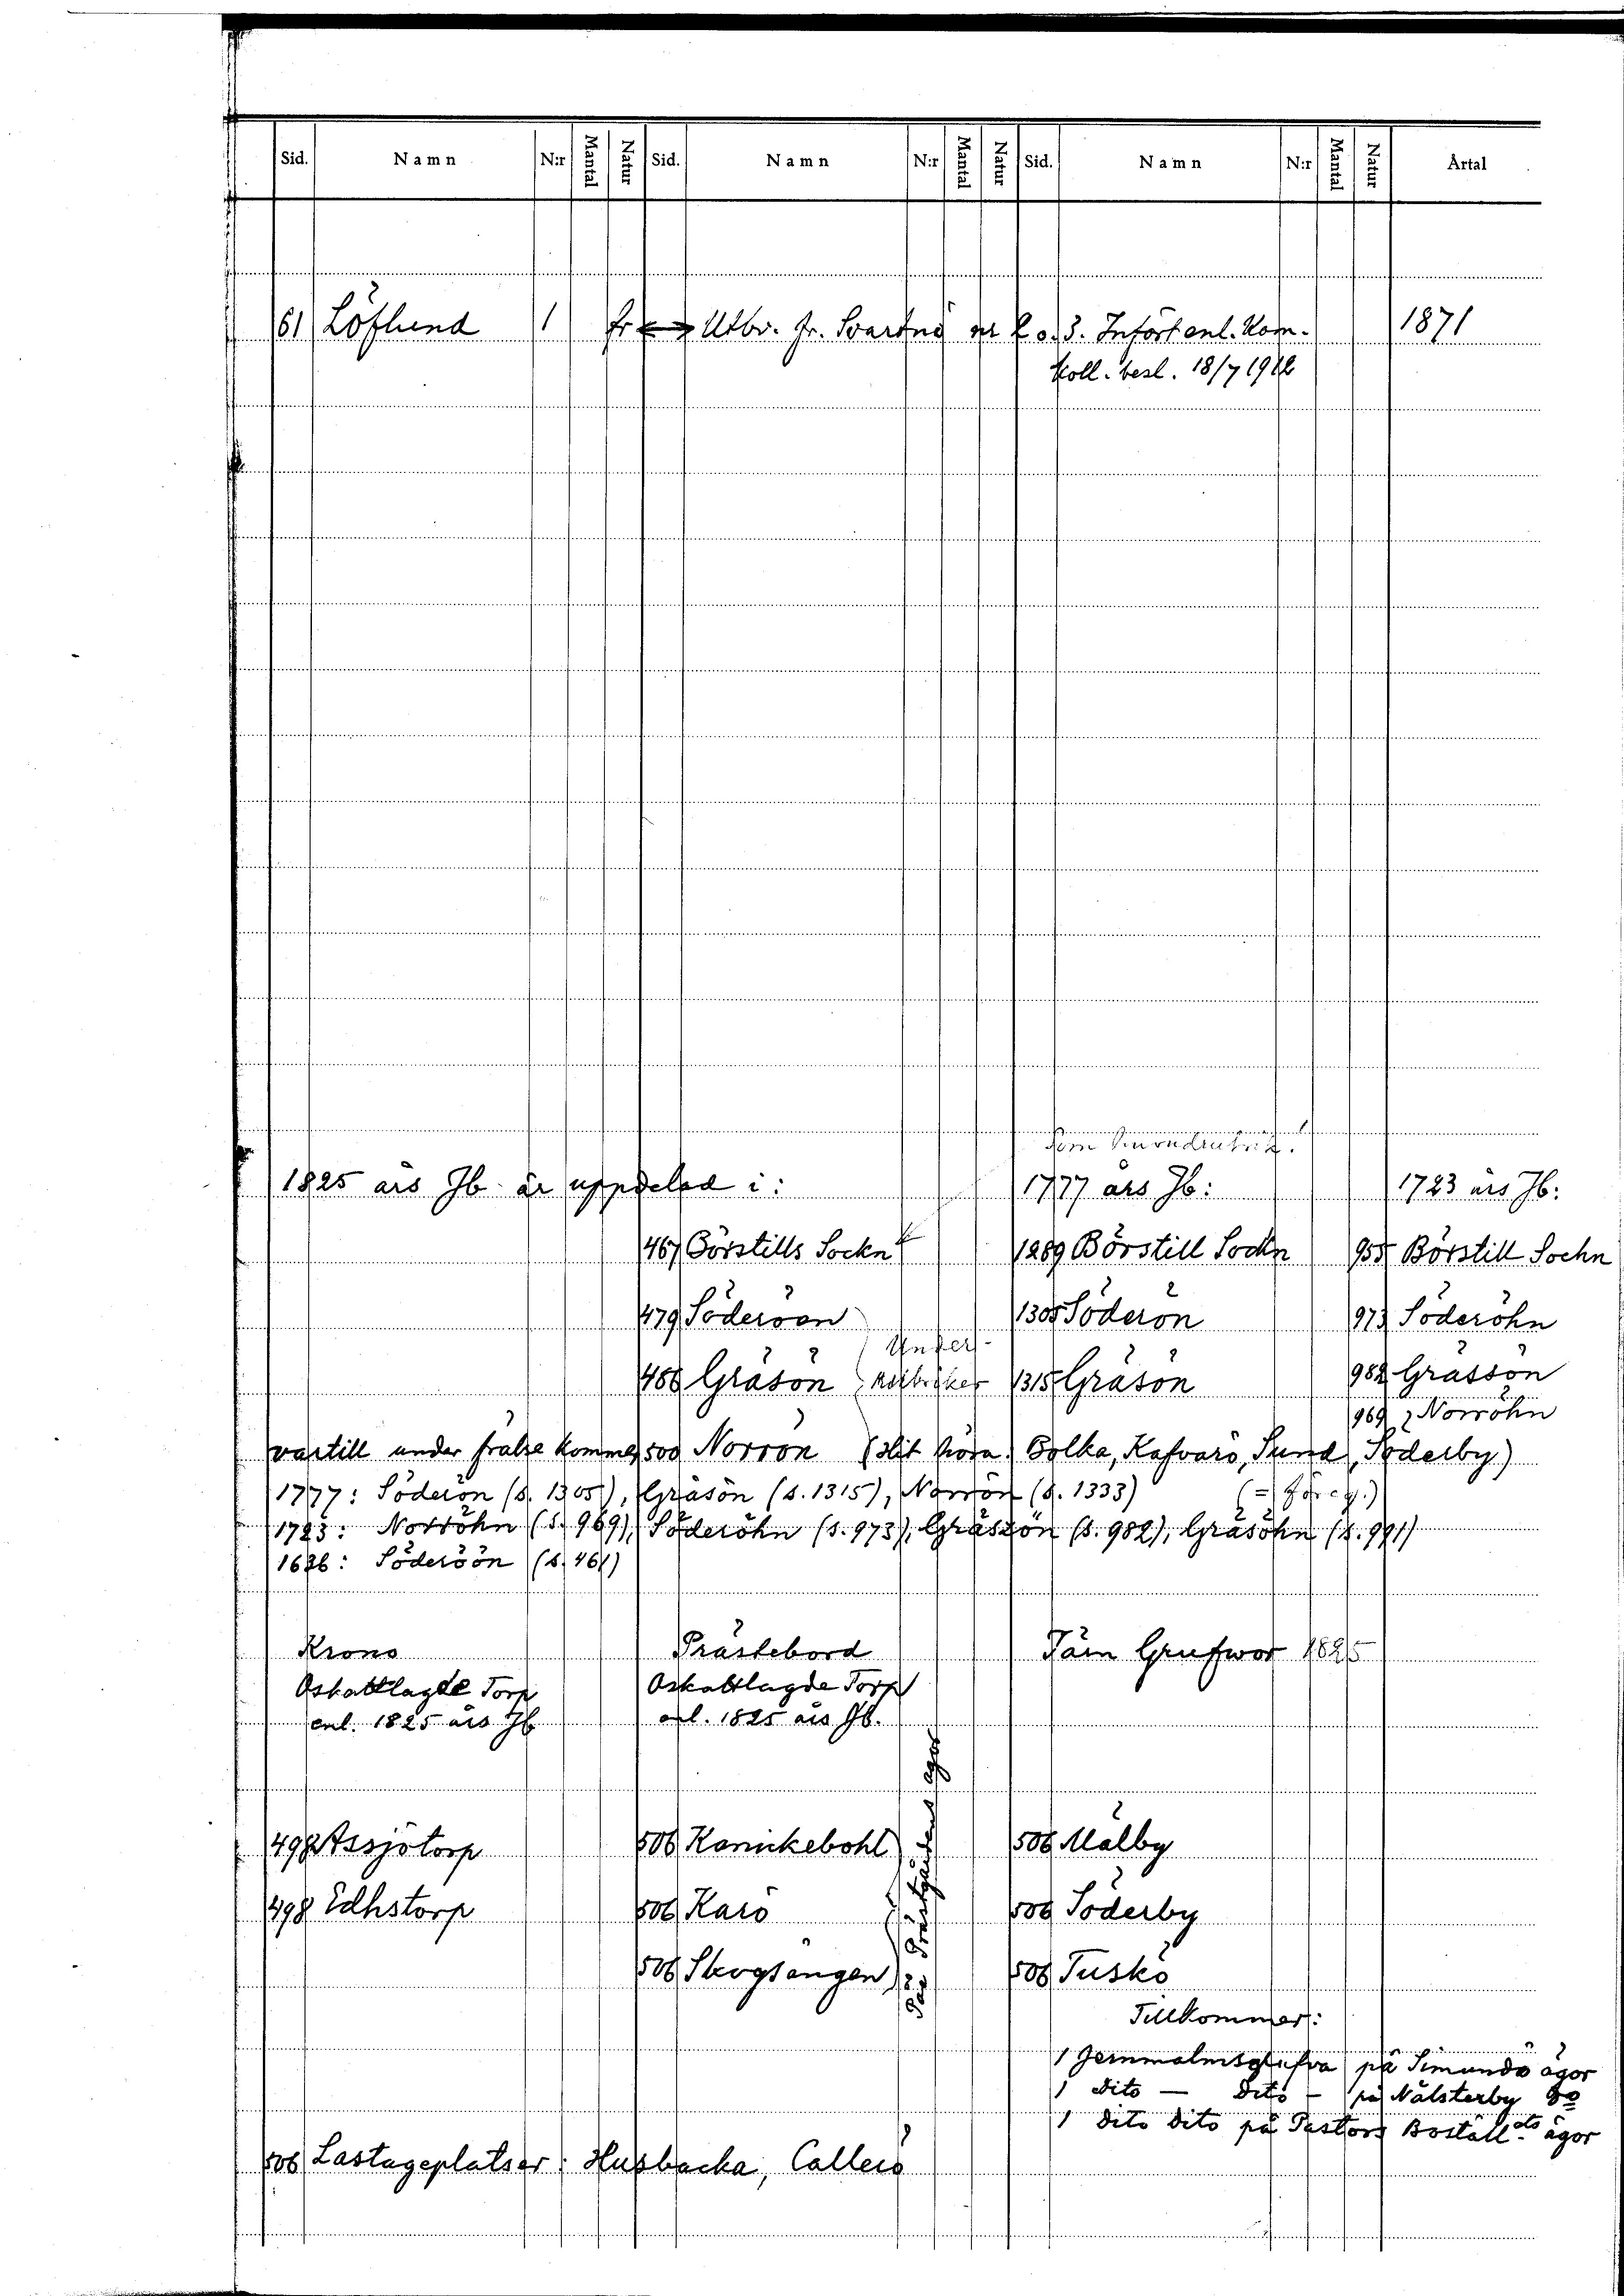 Sid. Namn N:r Mantal Natur Sid. Namn N:r Mantal Natur Sid. Namn N:r Mantal Natur Årtal
61 Löflund 1 fr Utbr. fr. Svartnö nr 2 o. 3. Infört enl. Kam. 1871
Koll. besl. 18/7 1912
1825 års Jb. är uppdelad i: 1777 års Jb: 1723 års Jb:
467 Börstills Sockn 1289 Börstill Sockn 955 Börstill Sochn
479 Söderöan 1305 Söderön 973 Söderöhn
Under-
486 Gräsön rubriker 1315 Gräsön 982 Grässön
969 Norröhn
vartill under frälse kommer 500 Norrön (Hit höra: Bolka, Kafvarö, Sund, Söderby)
1777: Söderön (s. 1305), Gräsön (s. 1315), Norrön (s. 1333) (= föreg.)
1723: Norröhn (s. 969), Söderöhn (s. 973), Grässön (s. 982), Gräsöhn (s. 991)
1686: Söderöön (s. 461)
Krono Prästebord Järn Grufvor 1825
Oskattlagde Torp Oskattlagde Torp
enl. 1825 års Jb enl. 1825 års Jb.
498 Assjötorp 506 Kanickebohl 506 Målby
498 Edhstorp 506 Karö 506 Söderby
506 Skogsängen 506 Tuskö
på Prästgårdens ägor
Tillkommer:
1 Jernmalmsgrufva på Simundö ägor
1 Dito — Dito — på Nälsterby do
1 Dito Dito på Pastors Boställets ägor
506 Lastageplatser: Husbacka, Callerö